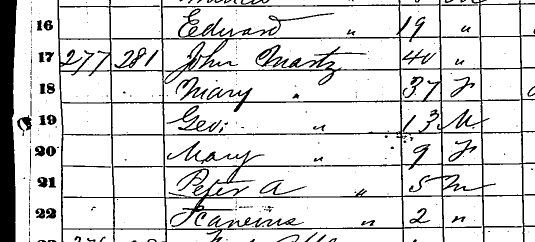 16 Edward " 19 "
17 277 281 John Martz 40 "
18 Mary " 37 F
19 Levi " 13 M
20 Mary " 9 F
21 Peter A " 5 M
22 " 2 "